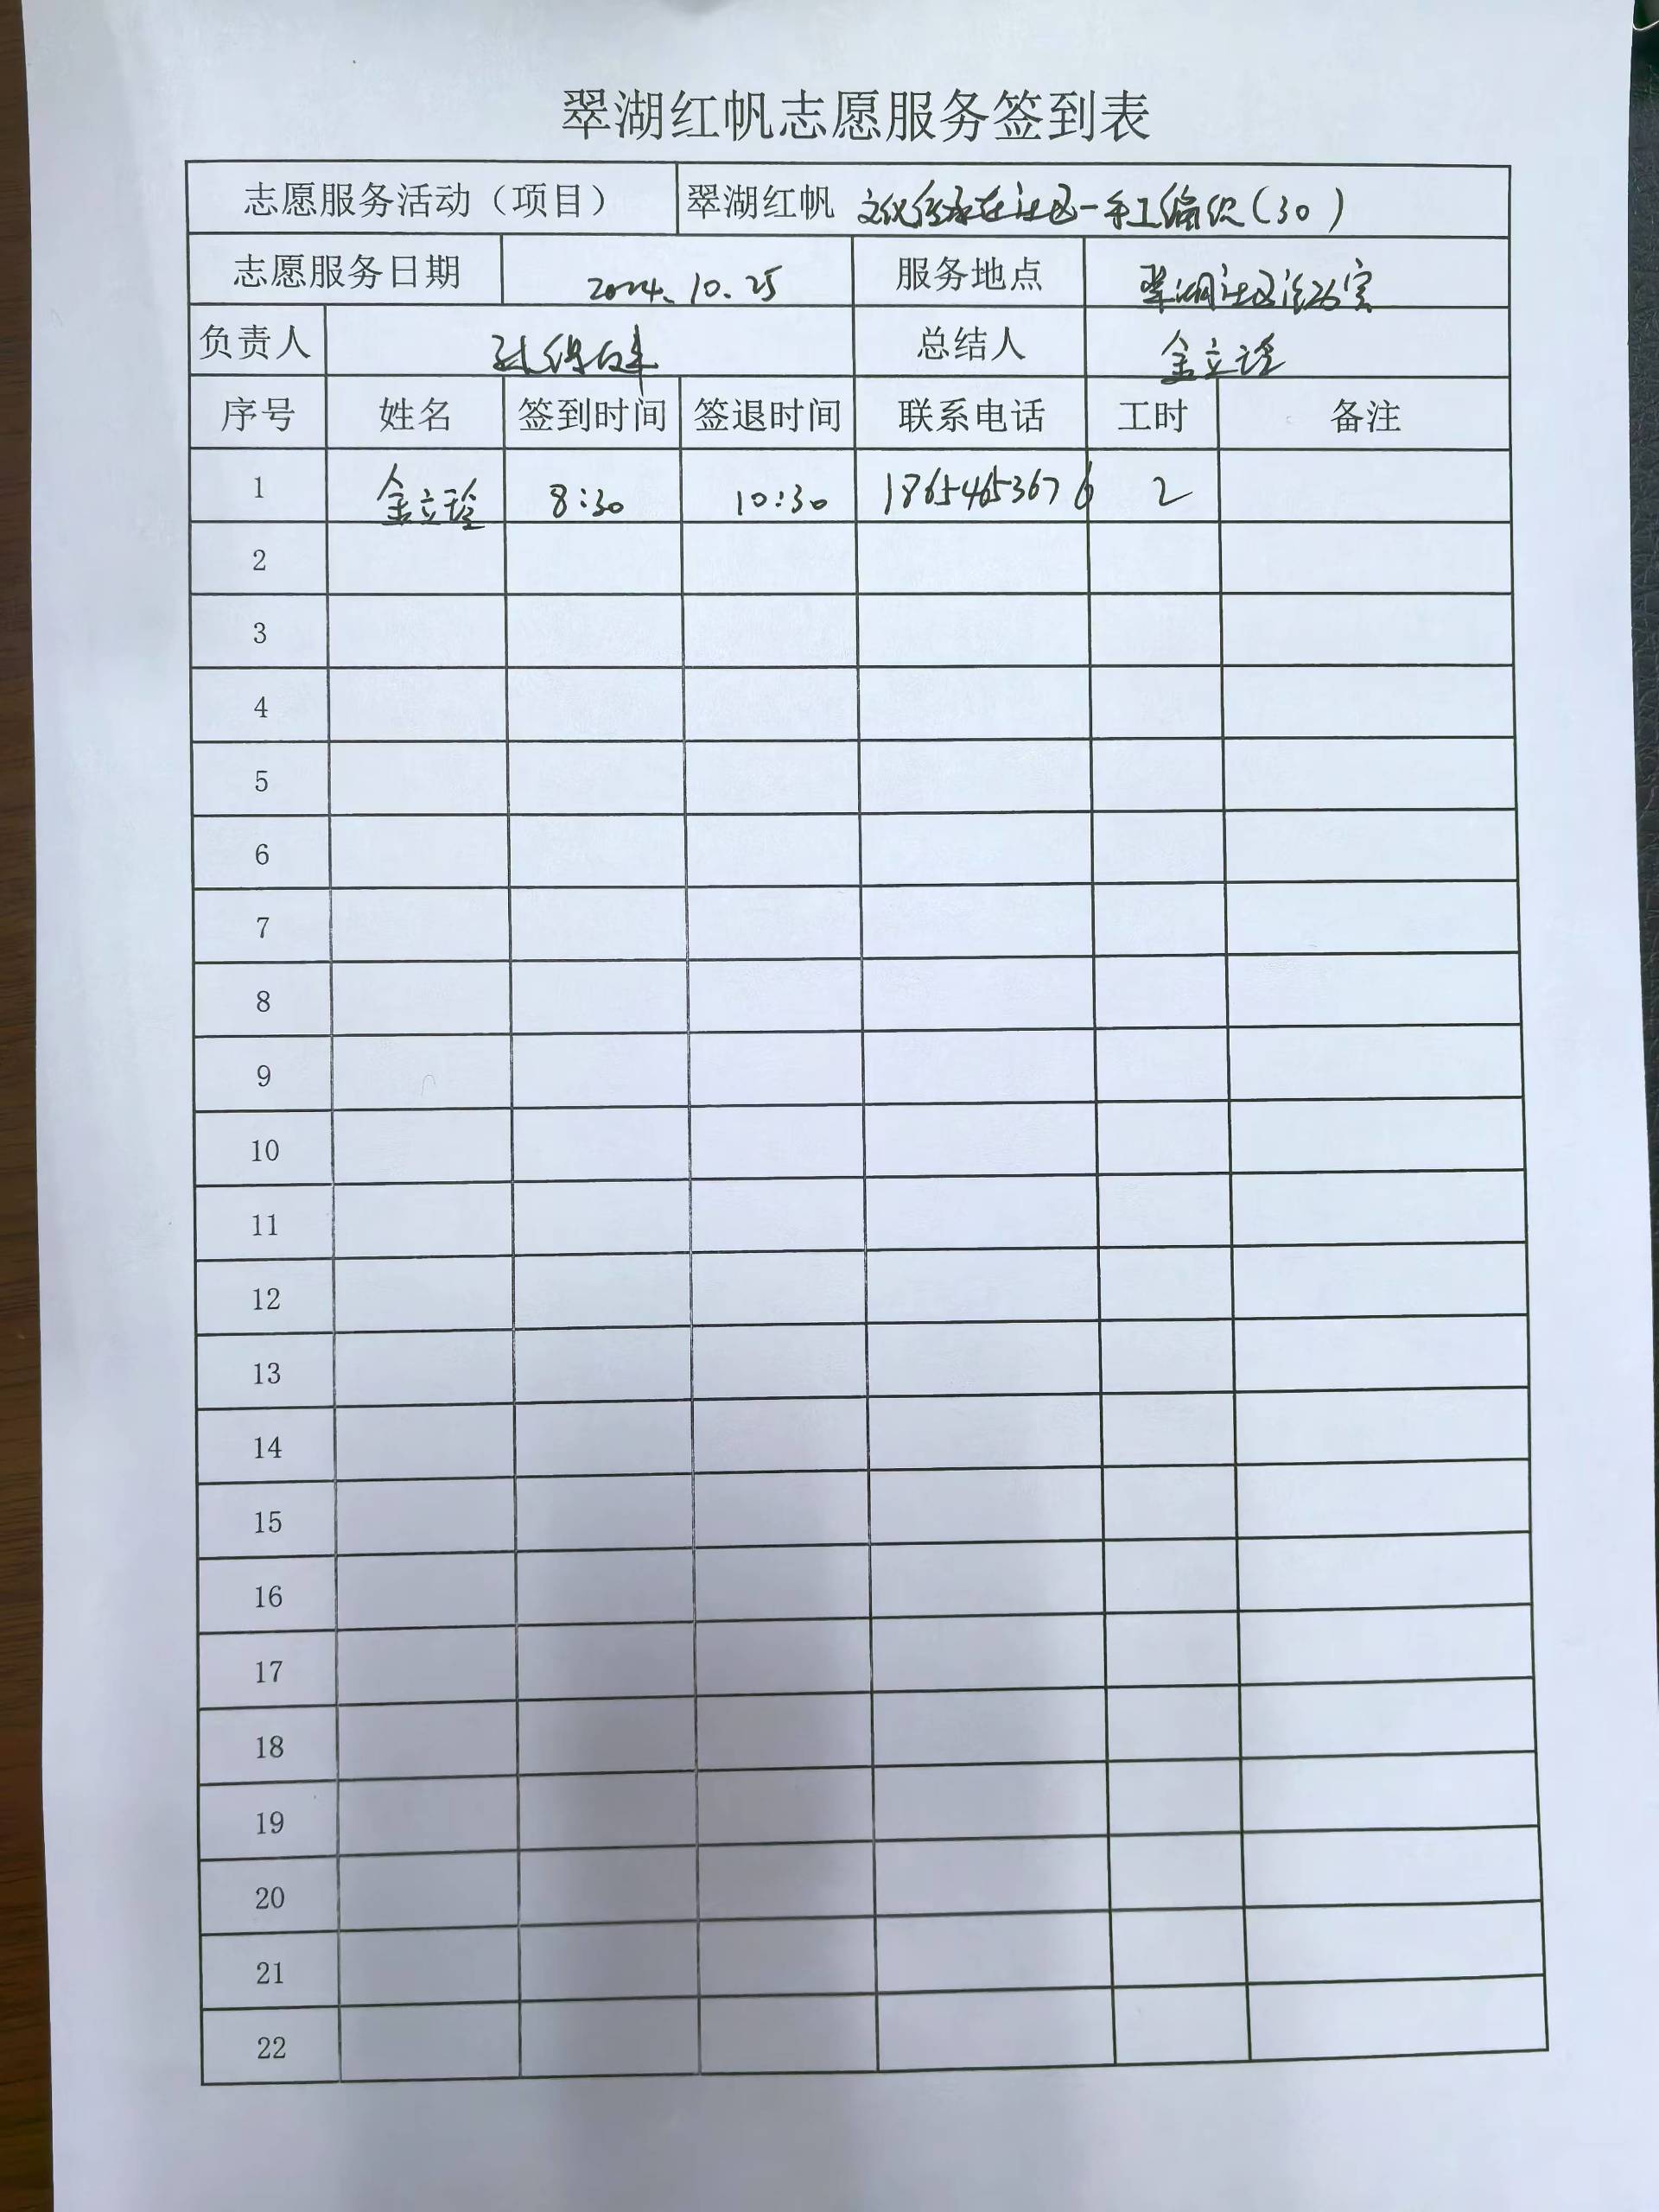 翠湖红帆志愿服务签到表
志愿服务活动（项目） 翠湖红帆 文化传承在社区一手工编织（30）
志愿服务日期 2024.10.25 服务地点 翠湖社区活动室
负责人 总结人 金立玲
序号 姓名 签到时间 签退时间 联系电话 工时 备注
1 金立玲 8:30 10:30 18654653676 2
2
3
4
5
6
7
8
9
10
11
12
13
14
15
16
17
18
19
20
21
22